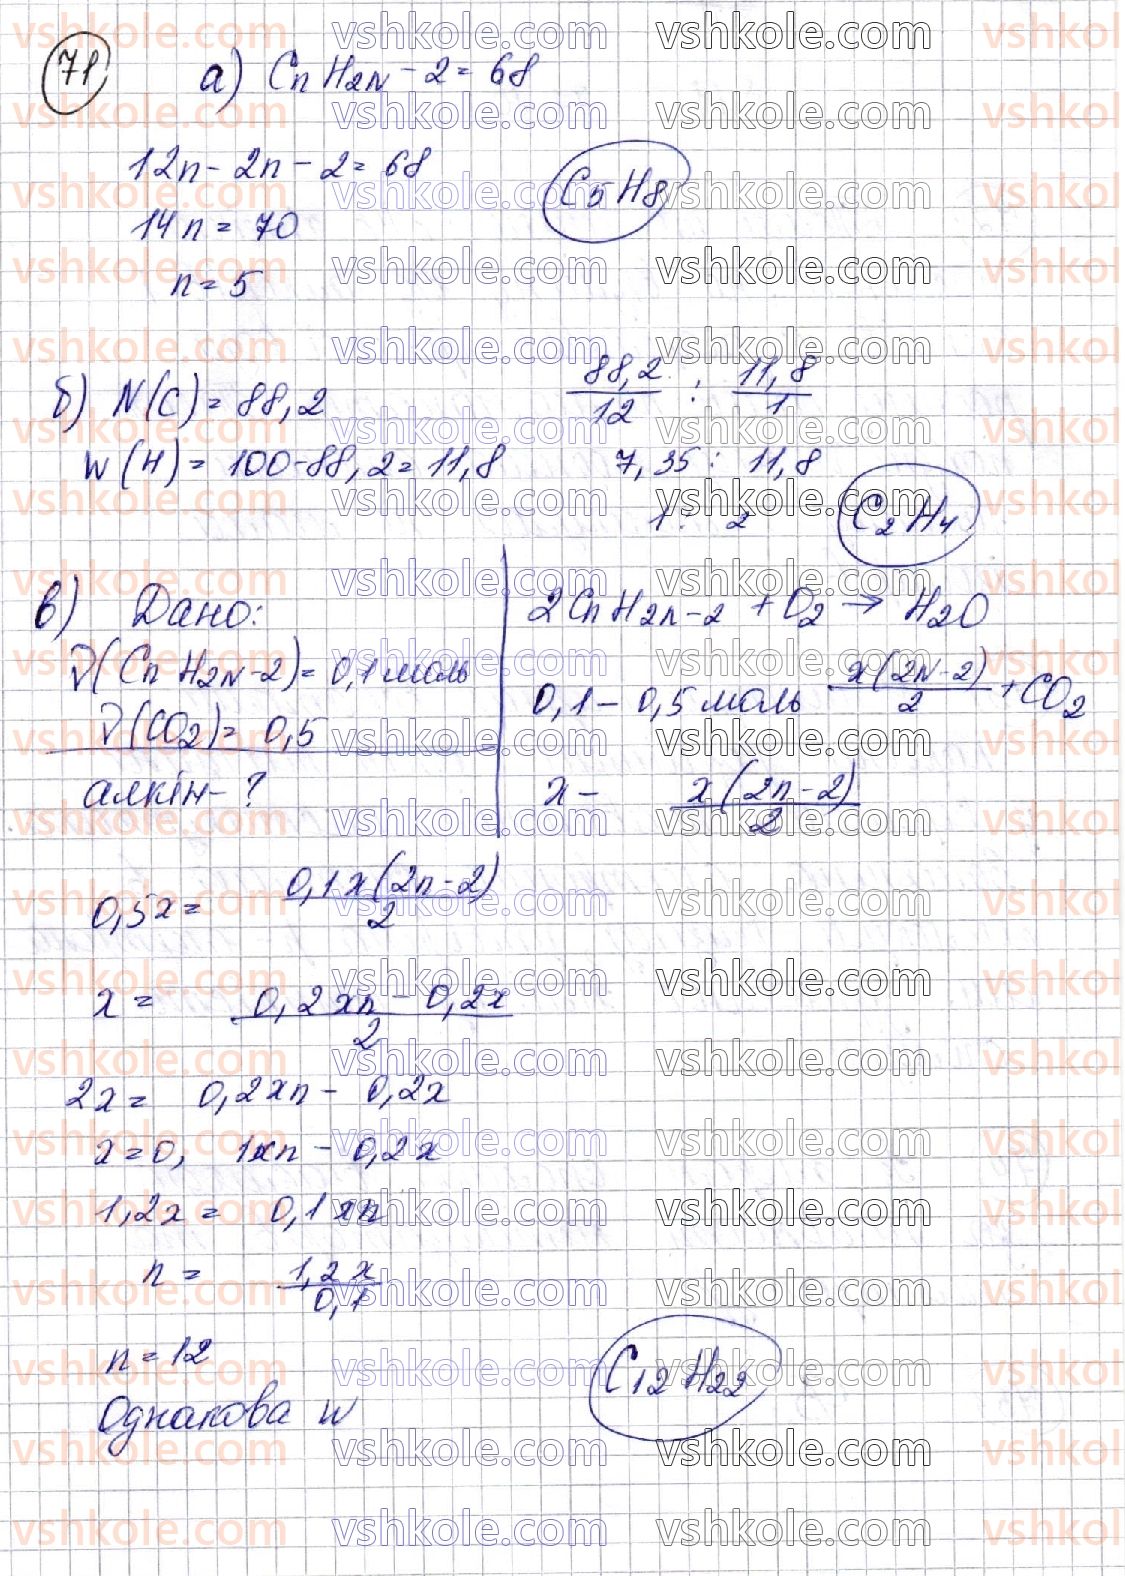 71
а) CnH2N-2=68
12n-2n-2=68
14n=70
n=5
C5H8
б) N(C)=88,2
W(H)=100-88,2=11,8
88,2/12 : 11,8/1
7,35 : 11,8
1 : 2
C2H4
в) Дано:
ν(CnH2N-2)=0,1 моль
ν(CO2)=0,5
алкін-?
2CnH2n-2 + O2 → H2O
0,1 - 0,5 моль x(2N-2)/2 + CO2
x - x(2n-2)/2
0,5x = 0,1x(2n-2)/2
x = 0,2xn - 0,2x/2
2x = 0,2xn - 0,2x
x=0,1xn - 0,2x
1,2x = 0,1xn
n = 1,2x/0,1
n=12
Однакова W
C12H22
vshkole.com